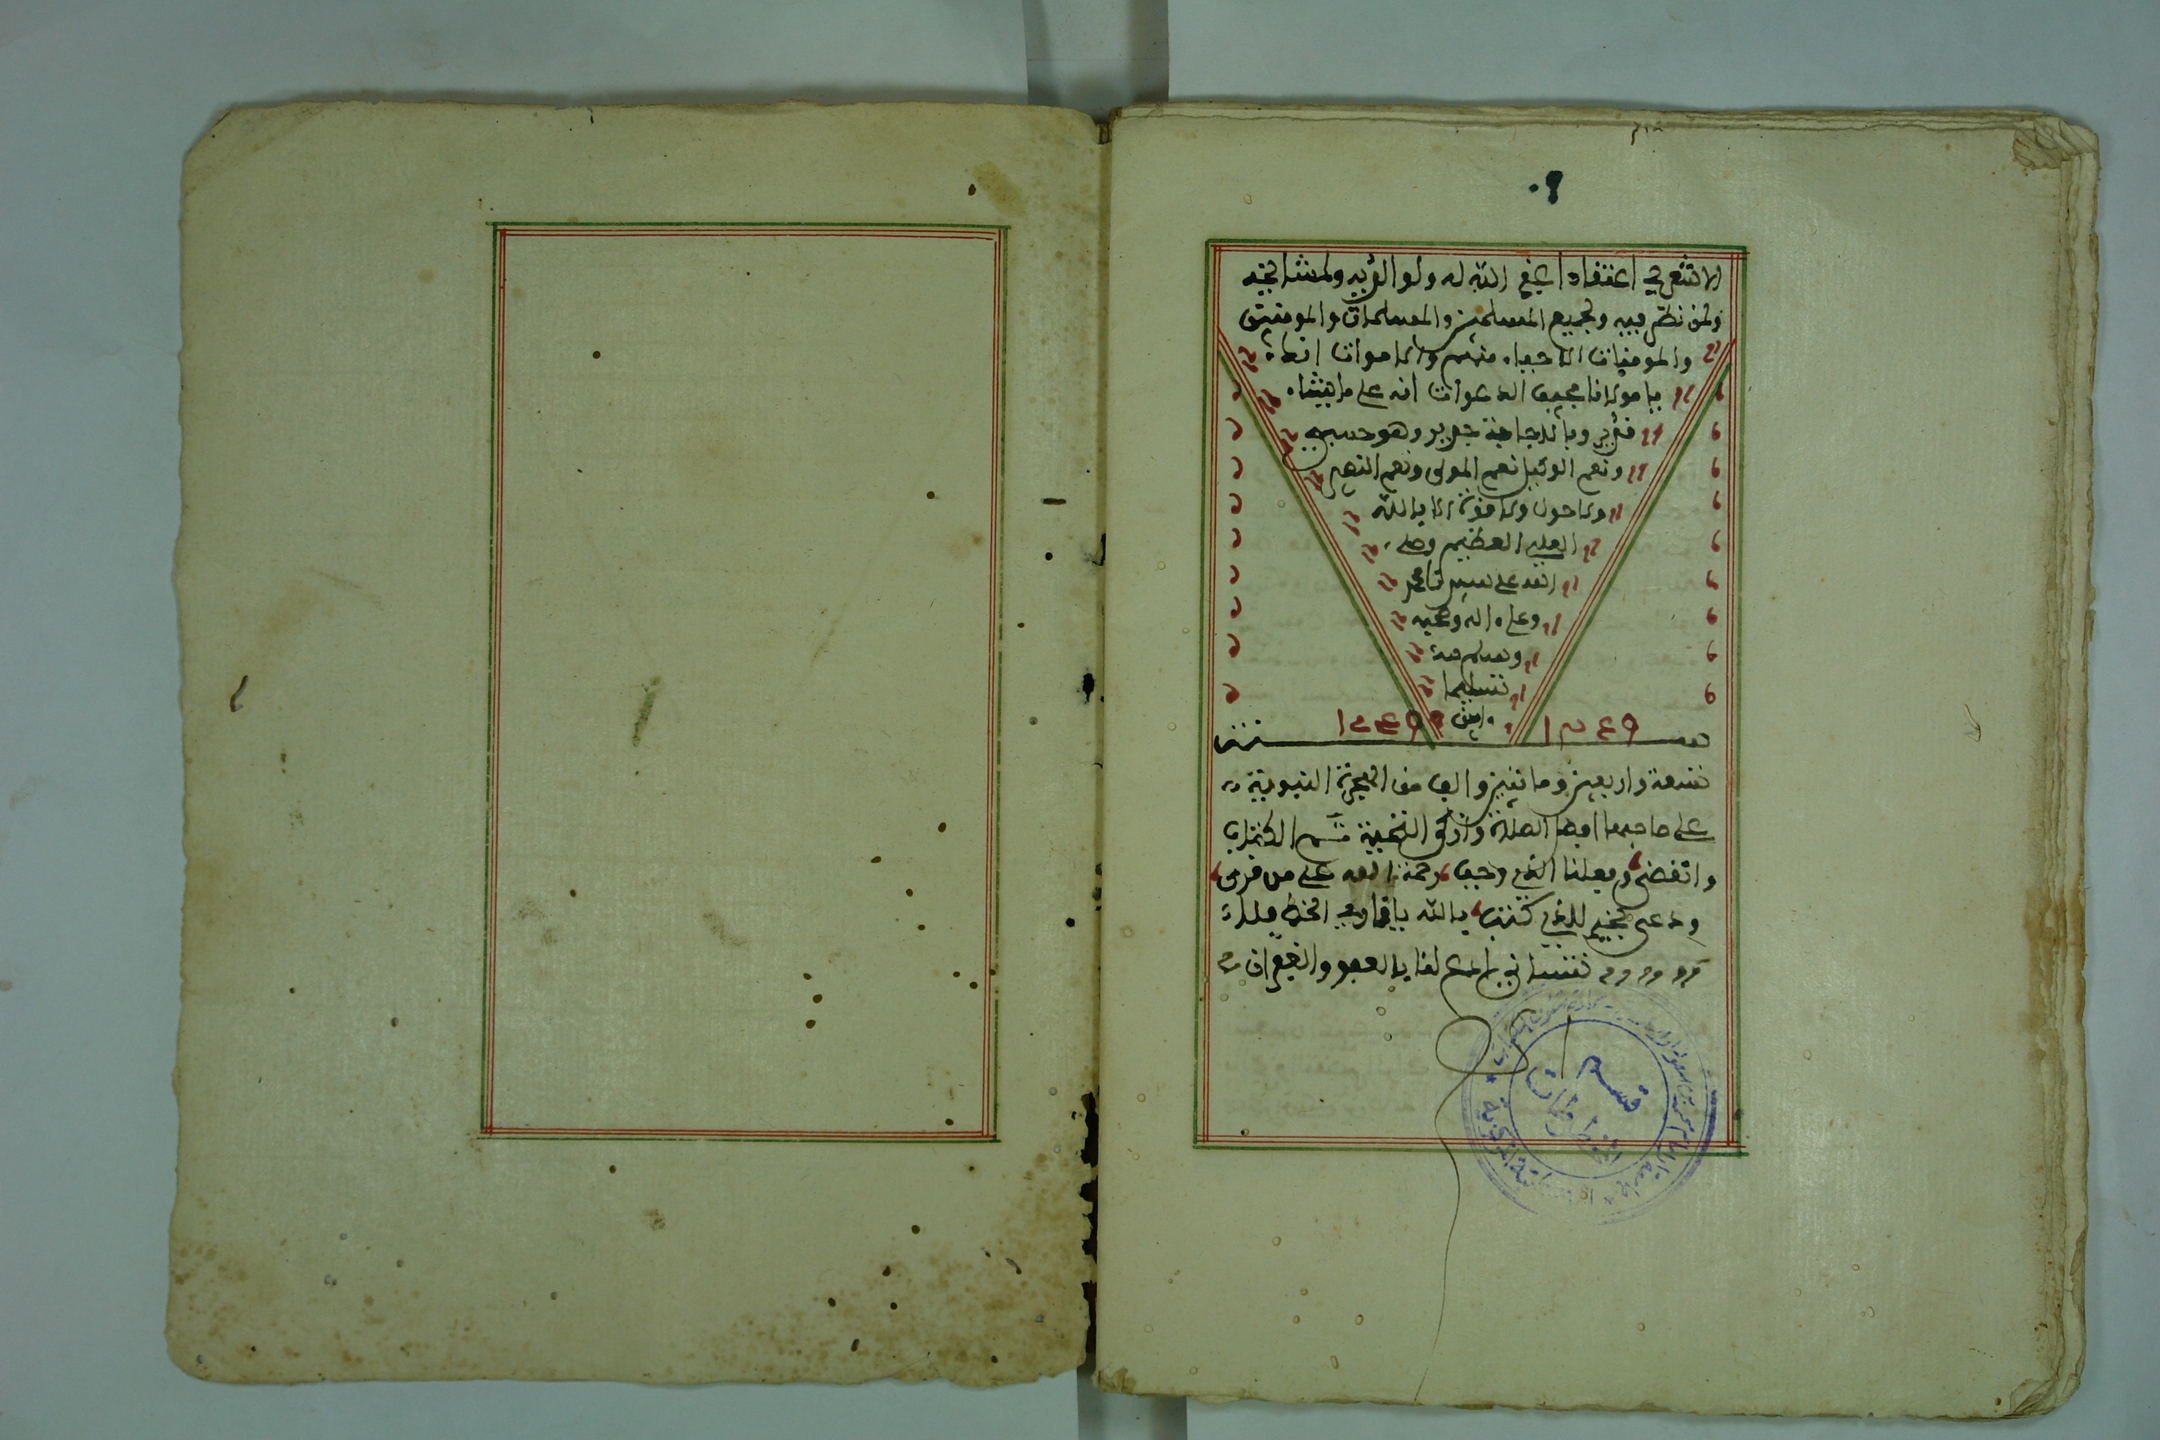 الاشعري اعتقادا غفر الله له ولوالديه ولمشايخه
ولمن نظر فيه ولجميع المسلمين والمسلمات والمومنين
والمومنات الاحياء منهم والاموات انك
يا مولانا مجيب الدعوات انه على ما يشاء
قدير وبالاجابة جدير وهو حسبي
ونعم الوكيل نعم المولى ونعم النصير
ولا حول ولا قوة الا بالله
العلي العظيم وصلى
الله على سيدنا محمد
وعلى اله وصحبه
وسلم
تسليما
امين
١٢٤٩ ١٢٤٩
سنة
تسعة واربعين ومائتين والف من الهجرة النبوية
على صاحبها افضل الصلاة وازكى التحية تم الكتاب
وانقضى وفعلنا الذي وجب رحمة الله على من قرى
ودعى بخير للذي كتب بالله يا قارئ الخط
تنساني بالله ادع لنا بالعفو والغفران
قسم
المخطوطات